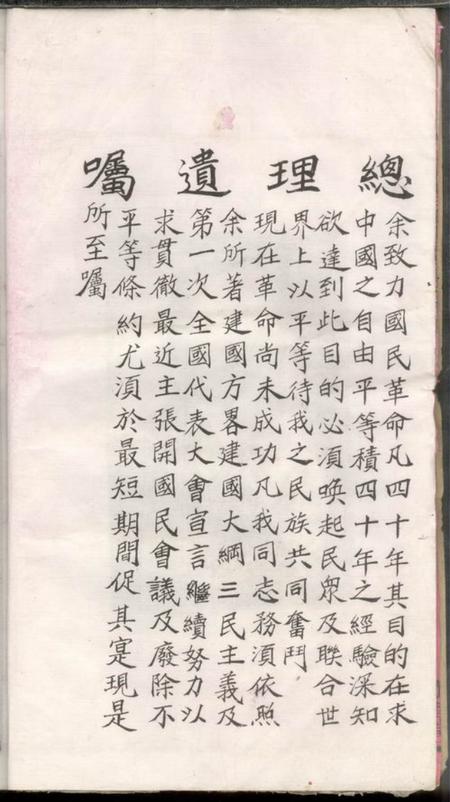 總理遺囑
余致力國民革命凡四十年其目的在求
中國之自由平等積四十年之經驗深知
欲達到此目的必須喚起民眾及聯合世
界上以平等待我之民族共同奮鬥
現在革命尚未成功凡我同志務須依照
余所著建國方畧建國大綱三民主義及
第一次全國代表大會宣言繼續努力以
求貫徹最近主張開國民會議及廢除不
平等條約尤須於最短期間促其寔現是
所至囑